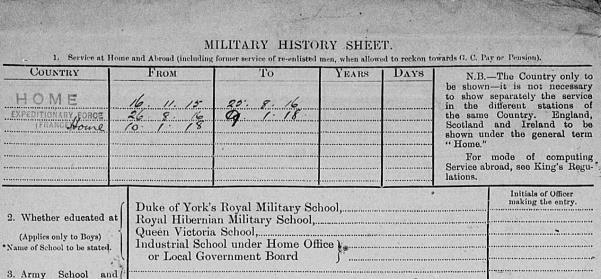 MILITARY HISTORY SHEET.
1. Service at Home and Abroad (including former service of re-enlisted men, when allowed to reckon towards G. C. Pay or Pension).
COUNTRY FROM TO YEARS DAYS
HOME 16 11 15 25 8 16
EXPEDITIONARY FORCE 26 8 16 9 1 18
(FRANCE) Home 10 1 18
N.B.—The Country only to
be shown—it is not necessary
to show separately the service
in the different stations of
the same Country. England,
Scotland and Ireland to be
shown under the general term
"Home."
For mode of computing
Service abroad, see King's Regu-
lations.
2. Whether educated at
(Applies only to Boys)
*Name of School to be stated.
Duke of York's Royal Military School,
Royal Hibernian Military School,
Queen Victoria School,
Industrial School under Home Office
or Local Government Board
Initials of Officer
making the entry.
3. Army School and